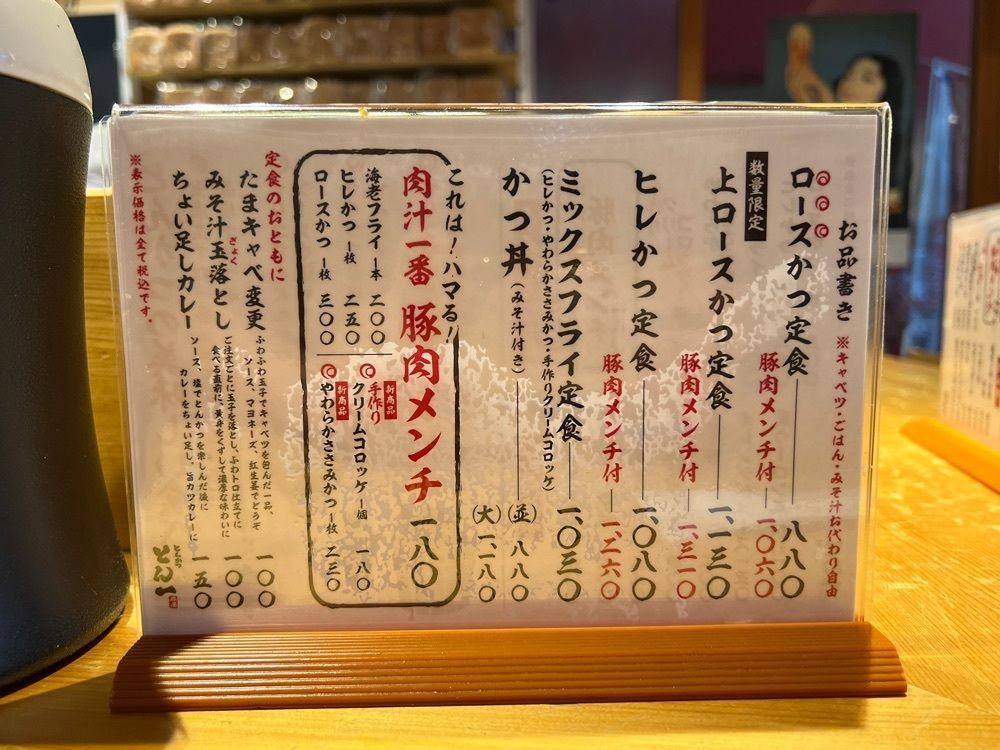 お品書き ※キャベツ・ごはん・みそ汁お代わり自由
ロースかつ定食 八八〇
豚肉メンチ付 一、〇六〇
数量限定
上ロースかつ定食 一、一三〇
豚肉メンチ付 一、三一〇
ヒレかつ定食 一、〇八〇
豚肉メンチ付 一、二六〇
ミックスフライ定食 一、〇三〇
(ヒレかつ・やわらかささみかつ・手作りクリームコロッケ)
かつ丼(みそ汁付き) (並) 八八〇
(大) 一、一八〇
これは!ハマる!
肉汁一番 豚肉メンチ 一八〇
海老フライ 一本 二〇〇
ヒレかつ 一枚 二五〇
ロースかつ 一枚 三〇〇
新商品
手作りクリームコロッケ 一個 一八〇
新商品
やわらかささみかつ 一枚 二三〇
定食のおともに
たまキャベ変更 ふわふわ玉子でキャベツを包んだ一品、
ソース、マヨネーズ、紅生姜でどうぞ 一〇〇
みそ汁玉落とし ご注文ごとに玉子を落とし、ふわトロ仕立てに
ぎょく
食べる直前に、黄身をくずして濃厚な味わいに 一〇〇
ちょい足しカレー ソース、塩でとんかつを楽しんだ後に
カレーをちょい足し。旨カツカレーに 一五〇
※表示価格は全て税込です。
とんかつ
とん一